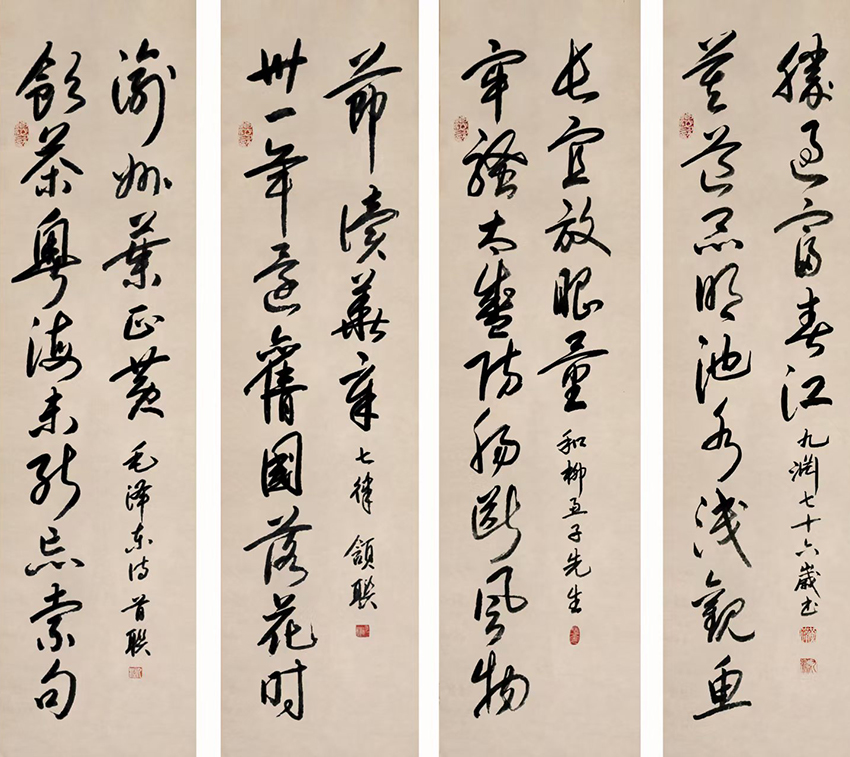 飲茶粤海未能忘索句
渝州葉正黄 毛泽东诗 首联
卅一年還舊國落花时
節读華章 七律 頷联
牢騷太盛防肠断风物
长宜放眼量 和柳亚子先生
莫道昆明池水浅觀鱼
勝过富春江 九渊七十六歲书